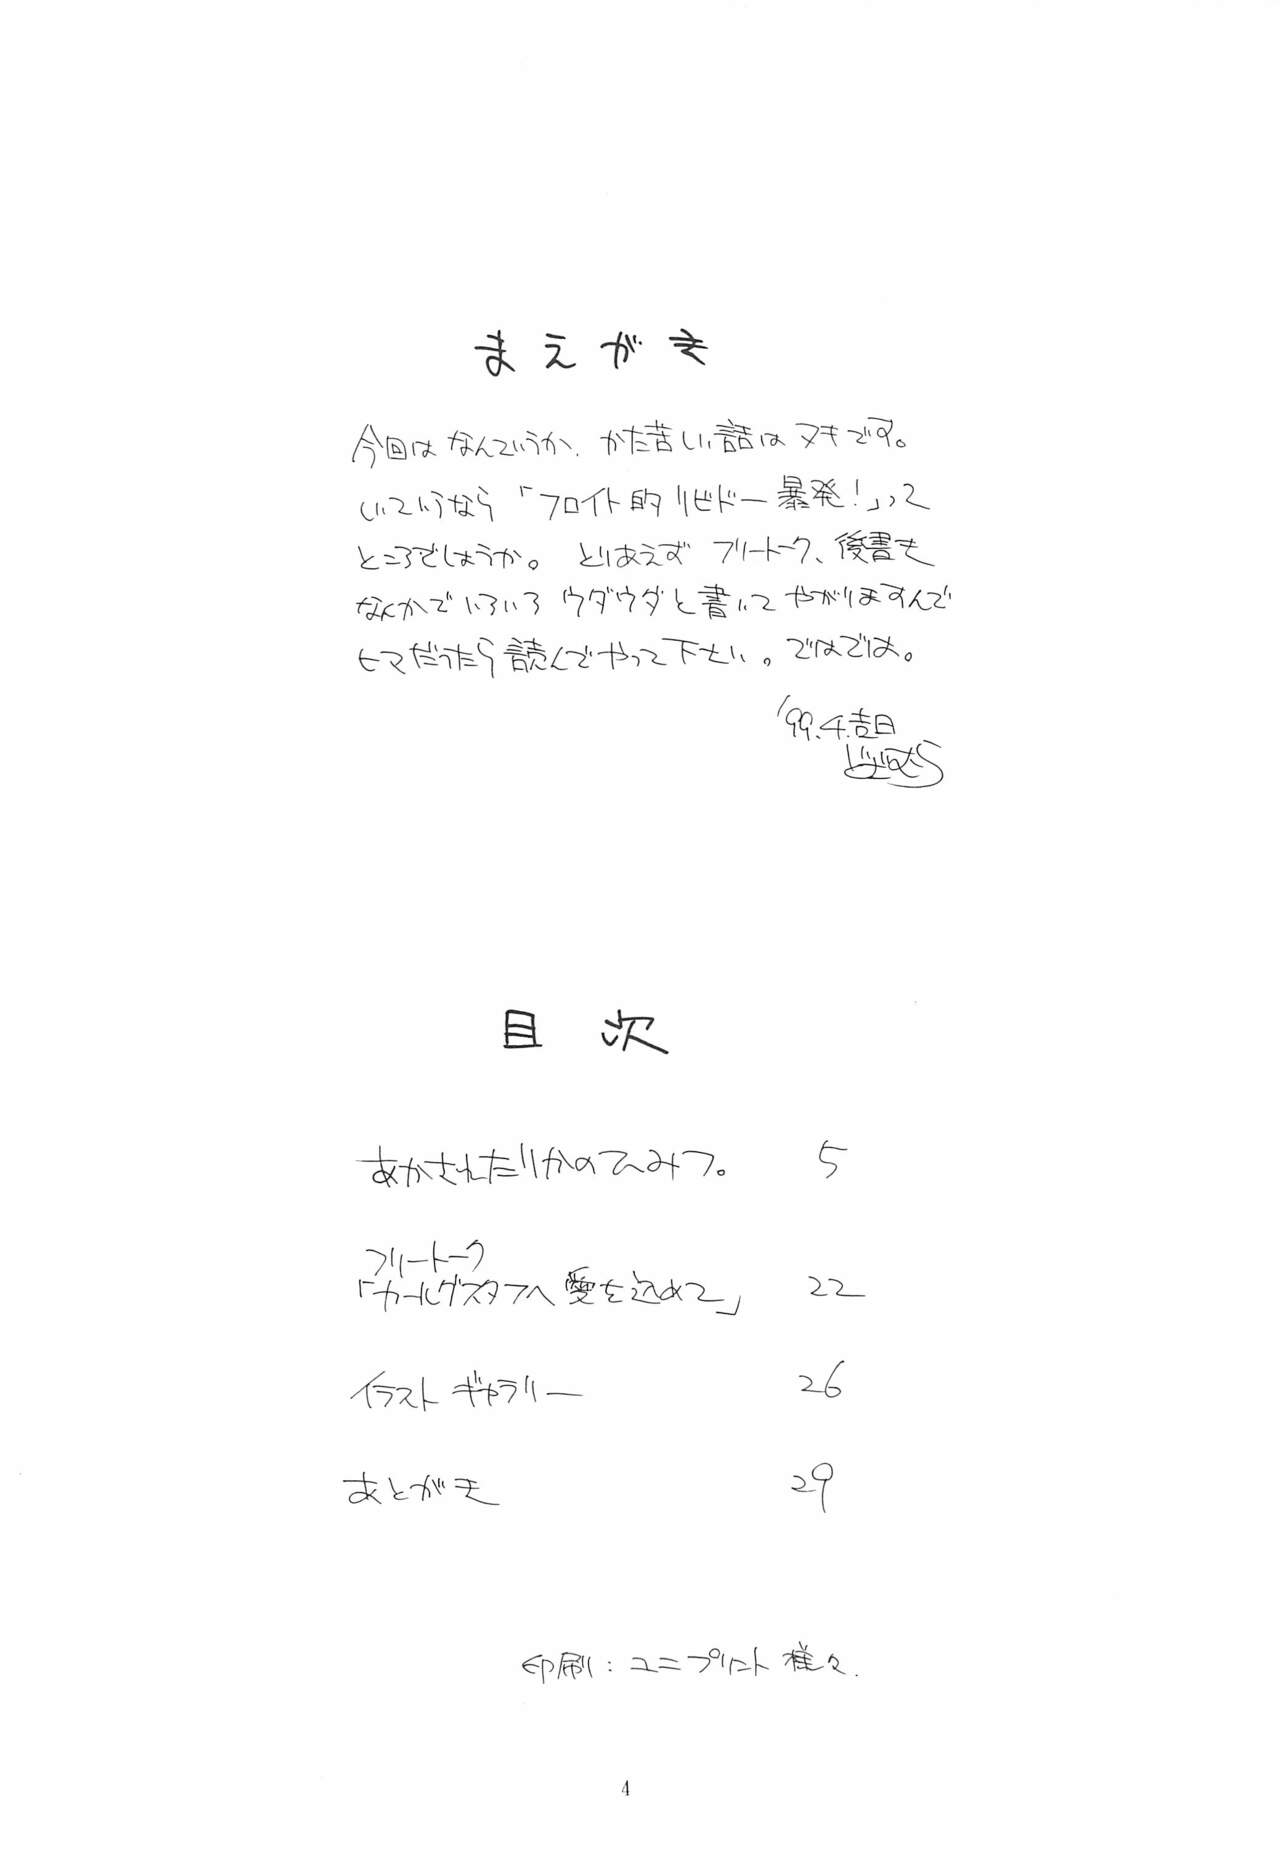 まえがき
今回はなんていうか、かた苦しい話はヌキです。
いていうなら「フロイト的リビドー暴発!」って
ところでしょうか。 とりあえず フリートーク、後書き
なんかでいろいろ ウダウダと書いて やがりますんで
ヒマだったら読んでやって下さい。ではでは。
'99.4.吉日
目 次
あかされたりかのひみつ。 5
フリートーク
「カールグスタフへ愛を込めて」 22
イラスト ギャラリー 26
あとがき 29
印刷:ユニプリント 様々.
4